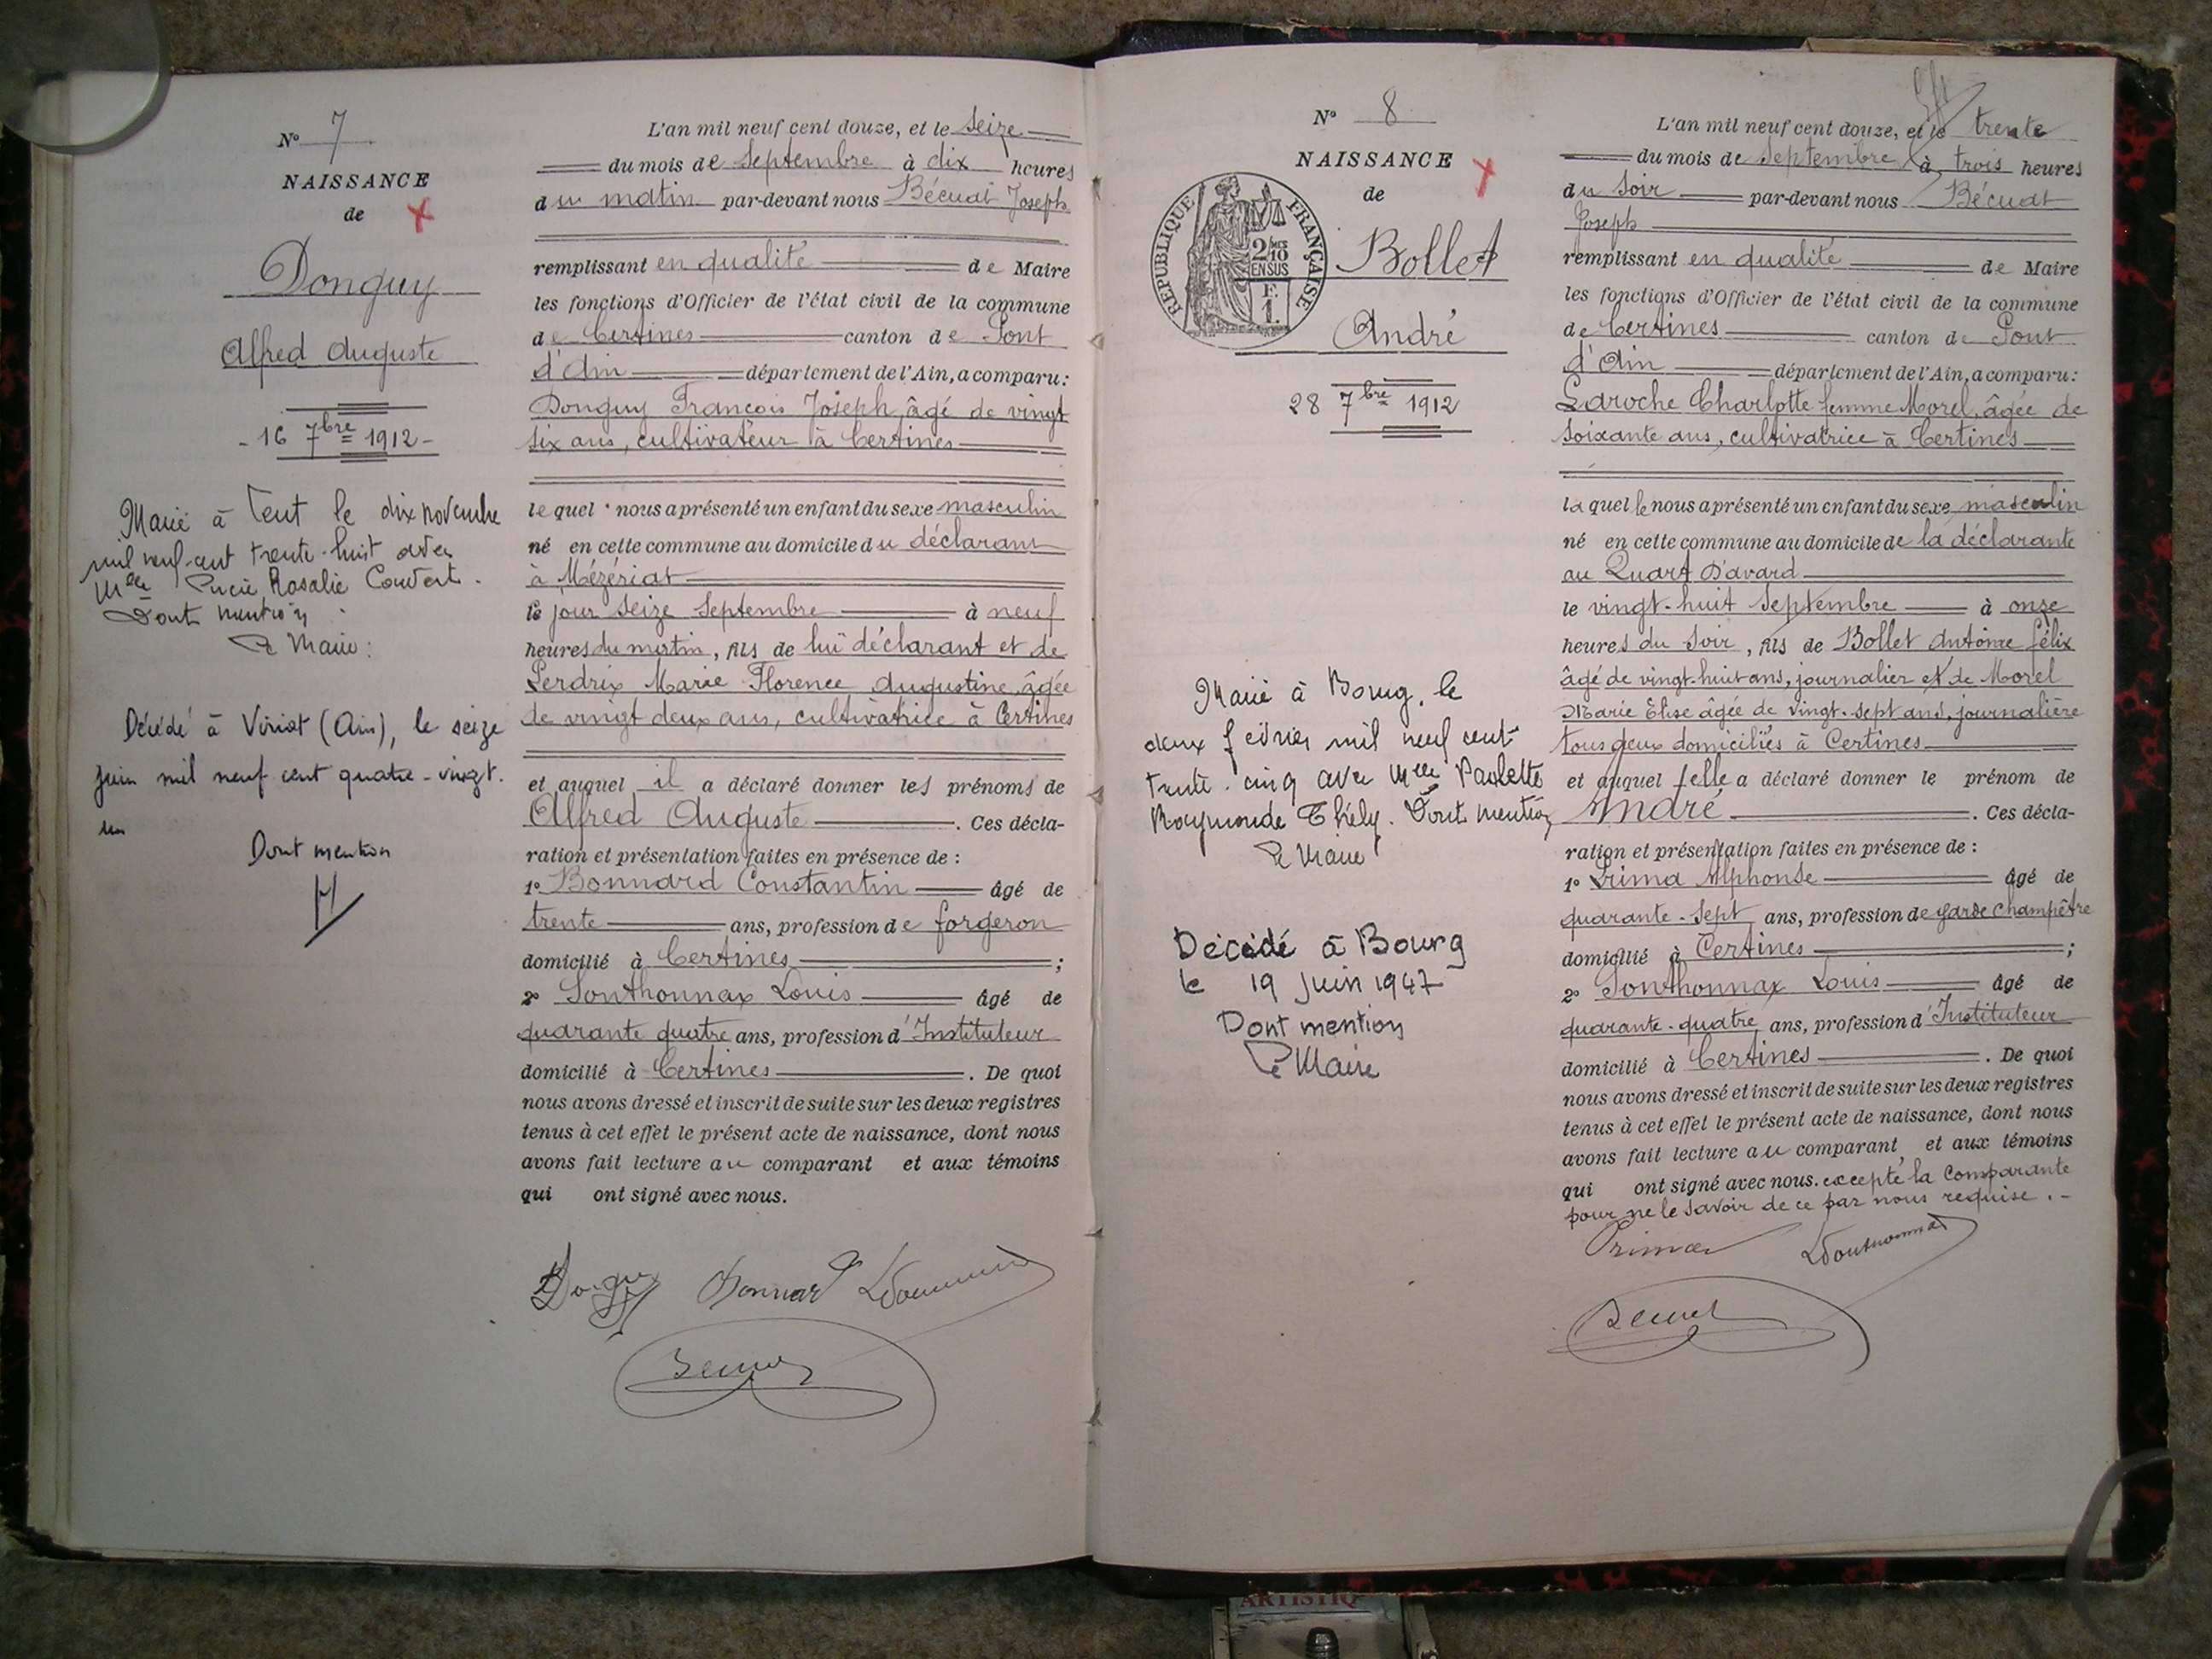 N° 7
NAISSANCE
de
Donguy
Alfred Auguste
- 16 7bre 1912 -
Marié à Tent le dix novembre
mil neuf-cent trente-huit avec
Mlle Lucie Rosalie Convert.
Dont mention
Le Maire :
Décédé à Viriat (Ain), le seize
juin mil neuf cent quatre-vingt.
un
Dont mention
L'an mil neuf cent douze, et le seize
du mois de Septembre à dix heures
du matin par-devant nous Bécuat Joseph
remplissant en qualité de Maire
les fonctions d'Officier de l'état civil de la commune
de Certines canton de Pont
d'Ain département de l'Ain, a comparu :
Donguy François Joseph, âgé de vingt
six ans, cultivateur à Certines
le quel nous a présenté un enfant du sexe masculin
né en cette commune au domicile du déclarant
à Mézériat
le jour seize Septembre à neuf
heures du matin, fils de lui déclarant et de
Perdrix Marie Florence Augustine, âgée
de vingt deux ans, cultivatrice à Certines
et auquel il a déclaré donner les prénoms de
Alfred Auguste . Ces décla-
ration et présentation faites en présence de :
1° Bonnard Constantin âgé de
trente ans, profession de forgeron
domicilié à Certines ;
2° Ponthonnax Louis âgé de
quarante quatre ans, profession d'Instituteur
domicilié à Certines . De quoi
nous avons dressé et inscrit de suite sur les deux registres
tenus à cet effet le présent acte de naissance, dont nous
avons fait lecture au comparant et aux témoins
qui ont signé avec nous.
Bonnard
N° 8
NAISSANCE
de
RÉPUBLIQUE FRANÇAISE
2/10 MES
EN SUS
F.
1.
Bollet
André
28 7bre 1912
Marié à Bourg, le
deux février mil neuf cent
trente-cinq avec Mlle Paulette
Raymonde Thély. Dont mention
Le Maire
Décédé à Bourg
le 19 Juin 1947
Dont mention
Le Maire
L'an mil neuf cent douze, et le trente
du mois de Septembre à trois heures
du soir par-devant nous Bécuat
Joseph
remplissant en qualité de Maire
les fonctions d'Officier de l'état civil de la commune
de Certines canton de Pont
d'Ain département de l'Ain, a comparu :
Laroche Charlotte femme Morel, âgée de
soixante ans, cultivatrice à Certines
la quelle nous a présenté un enfant du sexe masculin
né en cette commune au domicile de la déclarante
au Quart D'avard
le vingt-huit Septembre à onze
heures du soir, fils de Bollet Antoine Félix
âgé de vingt-huit ans, journalier et de Morel
Marie Elise âgée de vingt-sept ans, journalière
tous deux domiciliés à Certines
et auquel elle a déclaré donner le prénom de
André . Ces décla-
ration et présentation faites en présence de :
1° Prima Alphonse âgé de
quarante-sept ans, profession de garde champêtre
domicilié à Certines ;
2° Ponthonnax Louis âgé de
quarante-quatre ans, profession d'Instituteur
domicilié à Certines . De quoi
nous avons dressé et inscrit de suite sur les deux registres
tenus à cet effet le présent acte de naissance, dont nous
avons fait lecture au comparant et aux témoins
qui ont signé avec nous. excepté la comparante
pour ne le savoir de ce par nous requise. -
Prima
ARTISTIQ